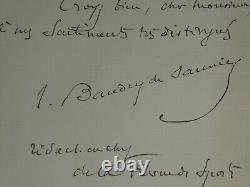 Croyez bien, cher monsieur
à mes sentiments très distingués
L. Baudry de Saunier
rédact. en chef
de la France Sports